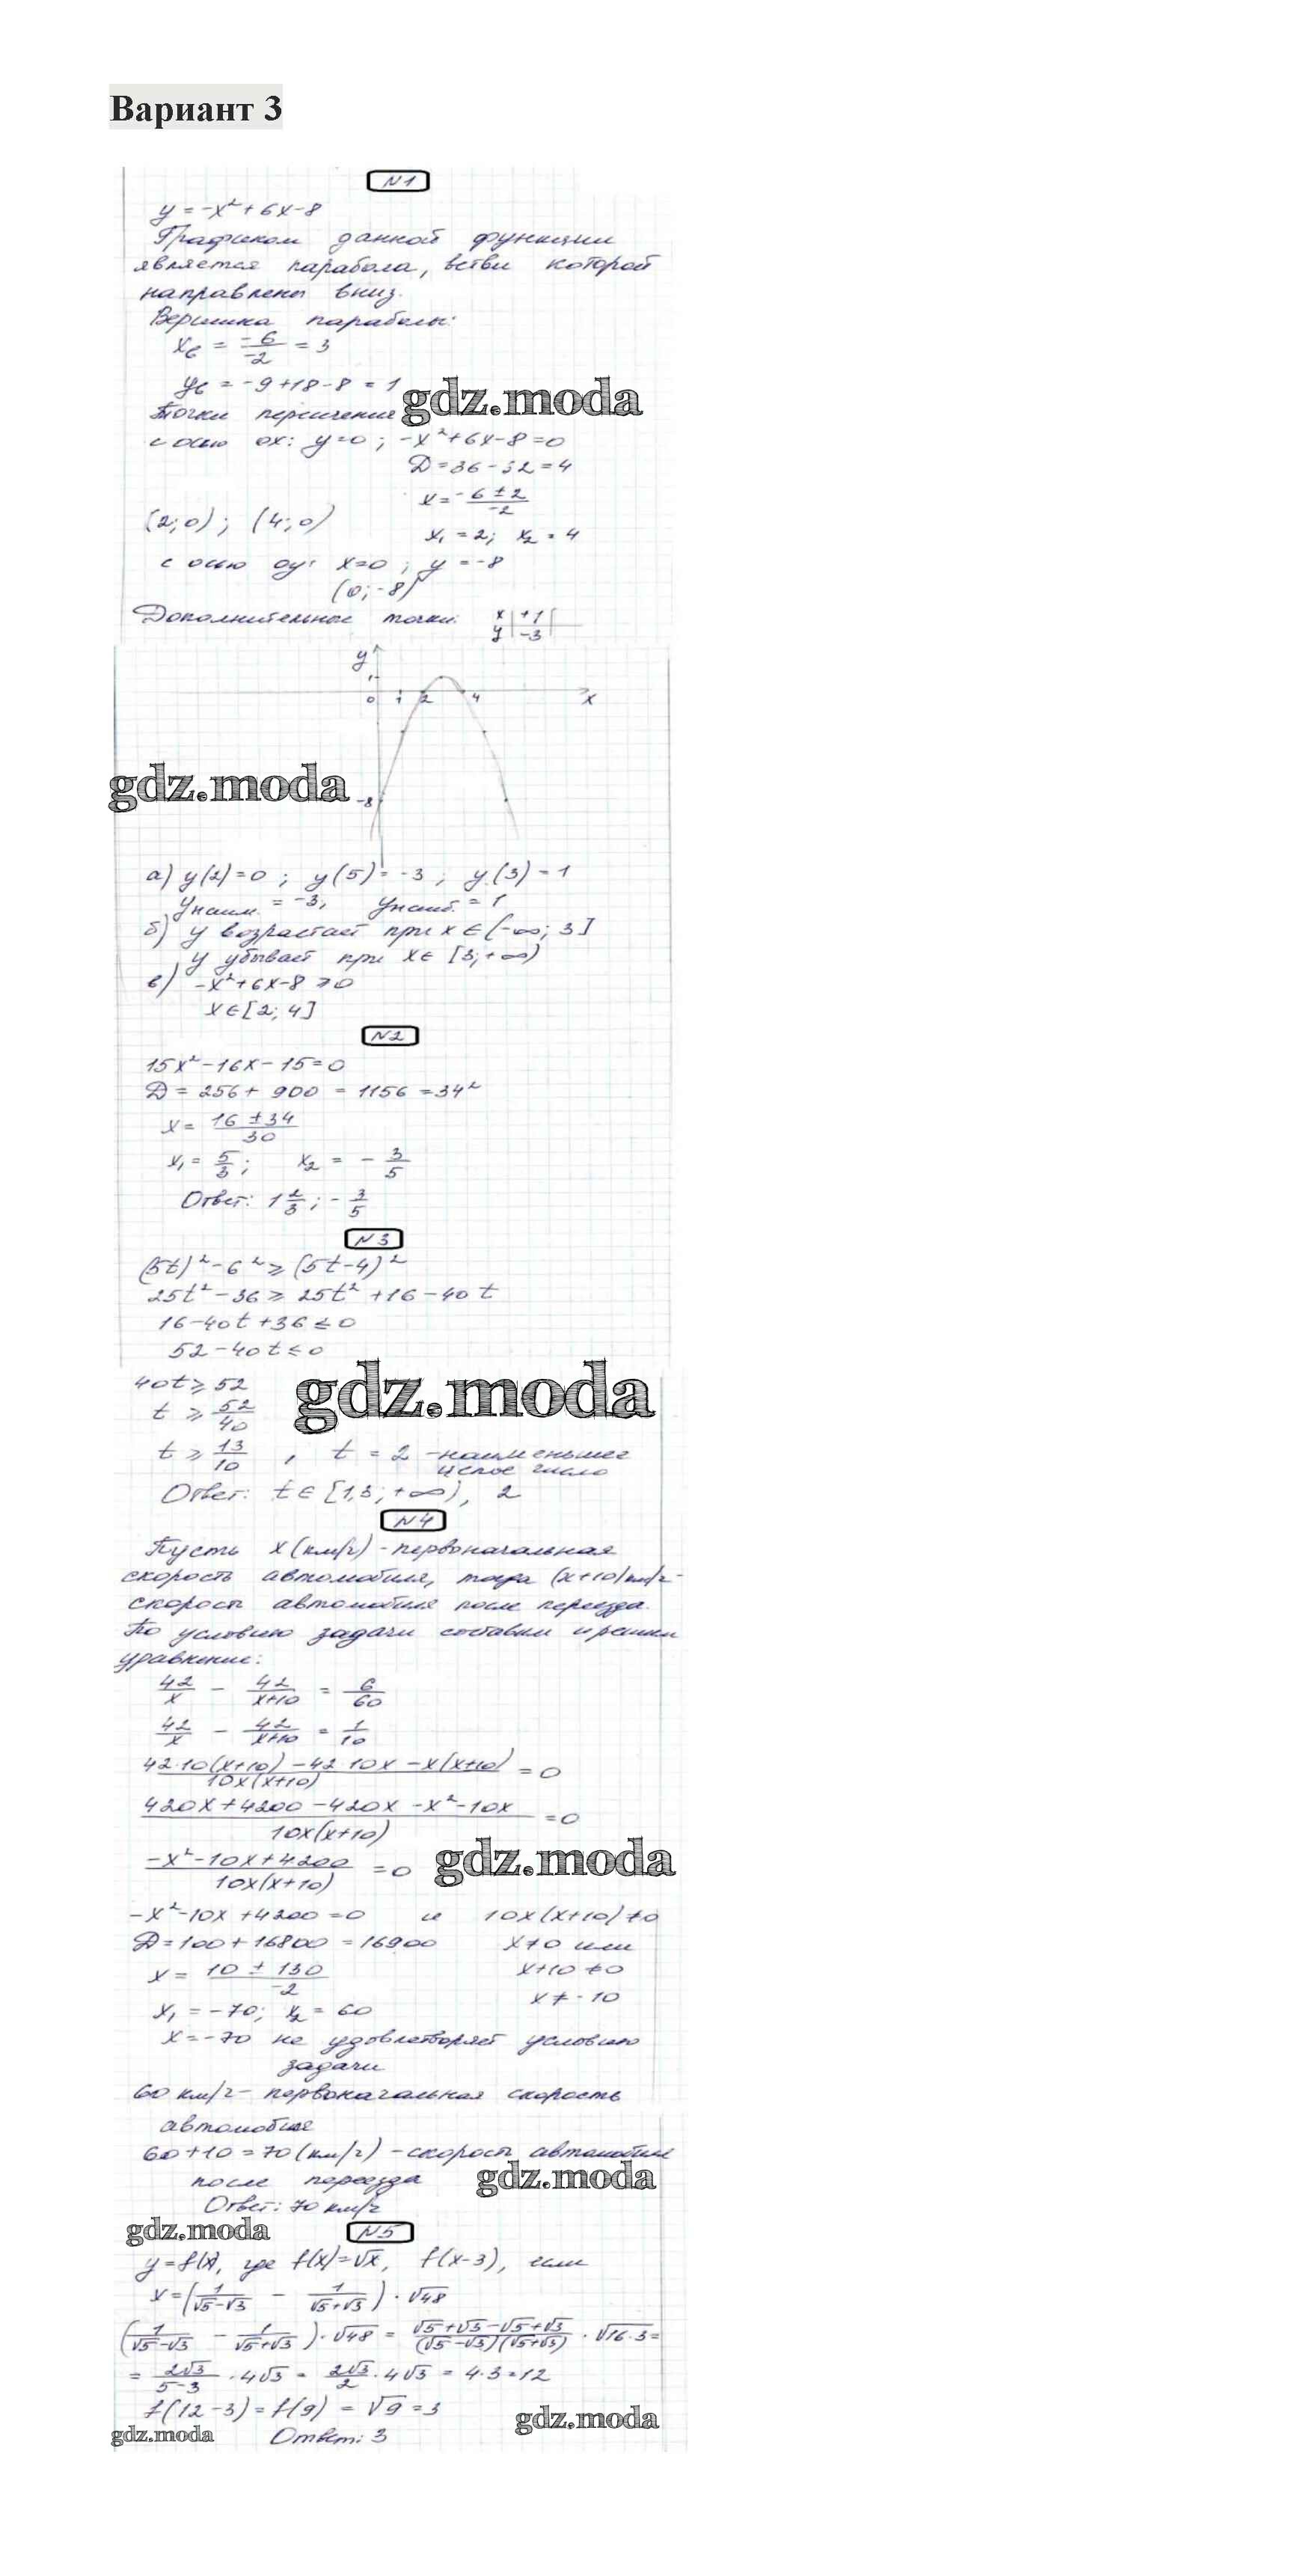 Вариант 3
N1
y = -x² + 6x - 8
Графиком данной функции
является парабола, ветви которой
направлены вниз.
Вершина параболы:
x₆ = -6/-2 = 3
y₆ = -9+18-8 = 1
gdz.moda
Точки пересечения
с осью ox: y=0 ; -x²+6x-8=0
D=36-32=4
x = -6±2/-2
(2;0) ; (4;0)
x₁ = 2; x₂ = 4
с осью oy: x=0 ; y = -8
(0;-8)
Дополнительные точки: x | +1 |
y | -3 |
y
1
0 1 2 4 x
gdz.moda
-8
а) y(2)=0 ; y(5)= -3 ; y(3) = 1
yнаим. = -3, yнаиб. = 1
б) y возрастает при x ∈ (-∞; 3]
y убывает при x ∈ [3;+∞)
в) -x²+6x-8 ≥ 0
x ∈ [2; 4]
N2
15x²-16x-15=0
D = 256 + 900 = 1156 = 34²
x = 16 ± 34/30
x₁ = 5/3 ; x₂ = - 3/5
Ответ: 1 2/3 ; - 3/5
N3
(5t)² - 6² ≥ (5t-4)²
25t² - 36 ≥ 25t² + 16 - 40t
16-40t+36 ≤ 0
52-40t ≤ 0
40t ≥ 52
gdz.moda
t ≥ 52/40
t ≥ 13/10 , t = 2 - наименьшее
целое число
Ответ: t ∈ [1,3 ; +∞), 2
N4
Пусть x (км/ч) - первоначальная
скорость автомобиля, тогда (x+10) км/ч -
скорость автомобиля после переезда.
По условию задачи составим и решим
уравнение:
42/x - 42/x+10 = 6/60
42/x - 42/x+10 = 1/10
42·10(x+10) - 42·10x - x(x+10)/10x(x+10) = 0
420x + 4200 - 420x - x² - 10x/10x(x+10) = 0
-x² - 10x + 4200/10x(x+10) = 0
gdz.moda
-x²-10x+4200=0 и 10x(x+10)≠0
D=100+16800=16900 x≠0 или
x = 10 ± 130/-2 x+10≠0
x₁ = -70; x₂ = 60 x≠-10
x=-70 не удовлетворяет условию
задачи
60 км/ч - первоначальная скорость
автомобиля
60+10=70 (км/ч) - скорость автомобиля
после переезда
gdz.moda
Ответ: 70 км/ч
gdz.moda
N5
y=f(x), где f(x)=√x, f(x-3), если
x = (1/√5-√3 - 1/√5+√3) · √48
(1/√5-√3 - 1/√5+√3) · √48 = √5+√3-√5+√3/(√5-√3)(√5+√3) · √16·3 =
= 2√3/5-3 · 4√3 = 2√3/2 · 4√3 = 4·3=12
f(12-3) = f(9) = √9 = 3
gdz.moda
gdz.moda
Ответ: 3